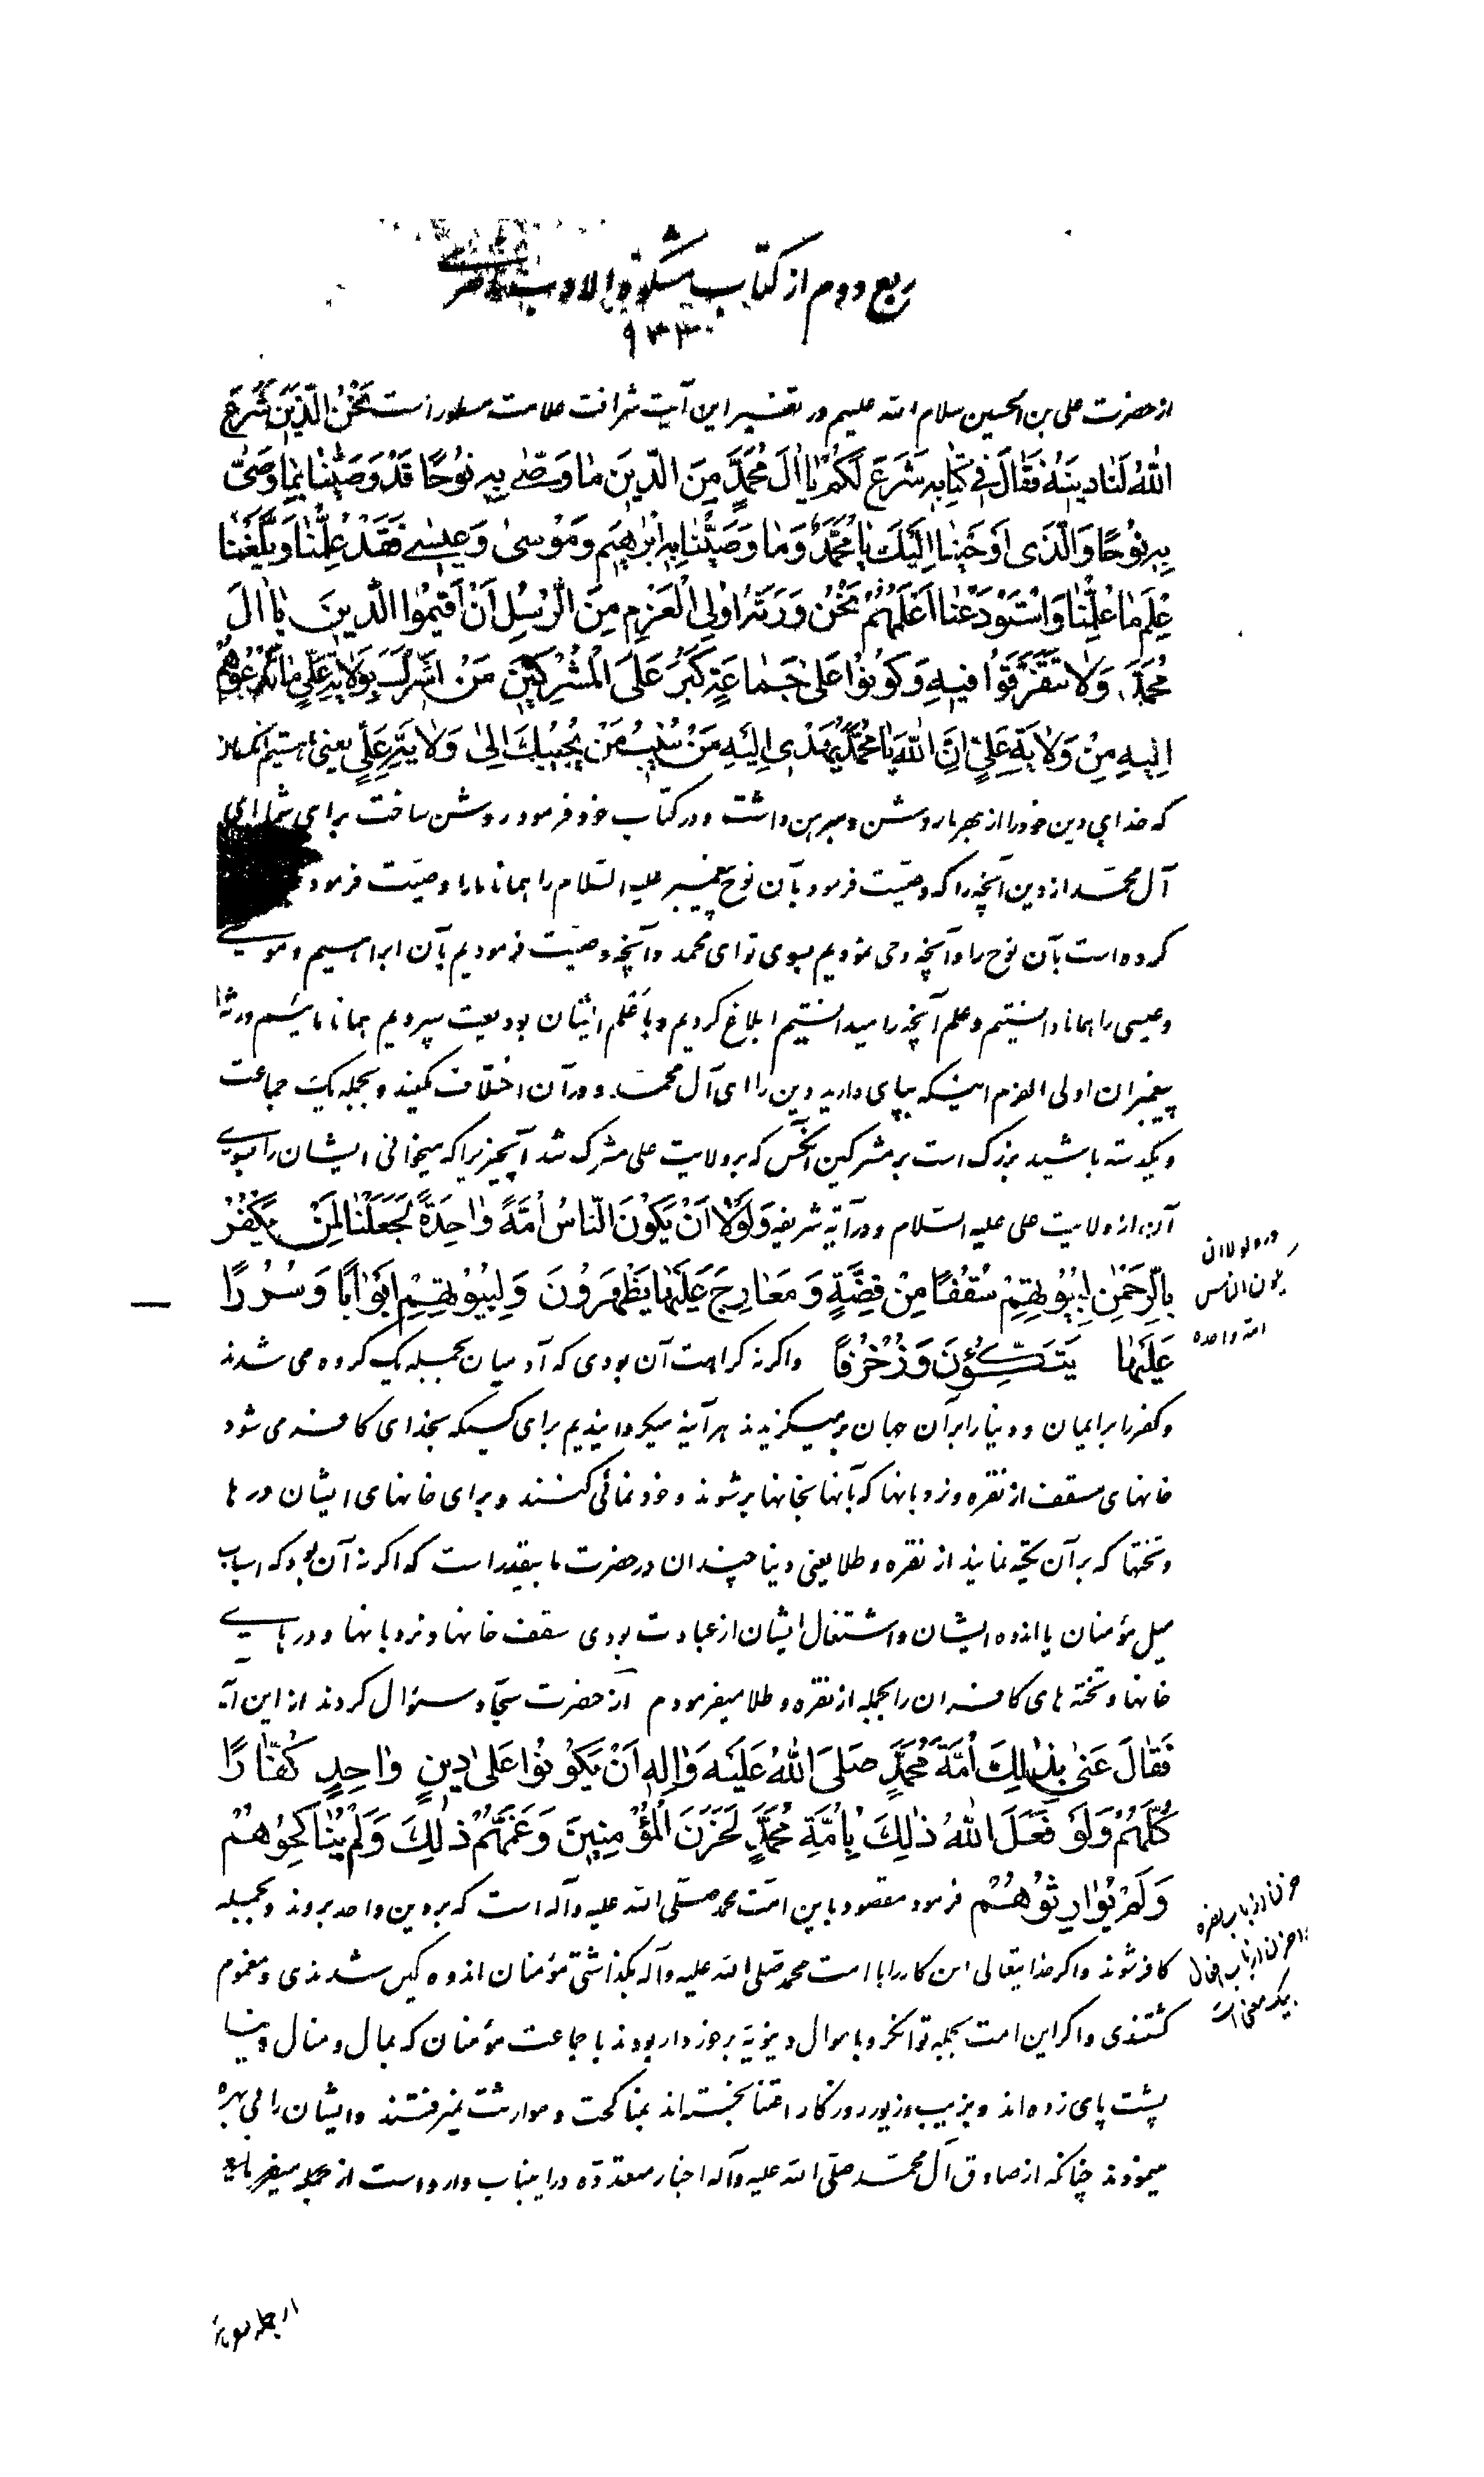 ربع دوم از کتاب مشکوة الادب ناصری
۹۳۳۰
از حضرت علی بن الحسین سلام الله علیهم در تفسیر این آیت شرافت علامت مسطور است نَحْنُ الَّذینَ شَرَعَ
اللهُ لَنا دینَهُ فَقالَ فی کِتابِهِ شَرَعَ لَکُمْ یا الَ مُحَمَّدٍ مِنَ الدّینِ ما وَصّی بِهِ نُوحًا قَدْ وَصَّیْنا بِما وَصّی
بِهِ نُوحًا وَالَّذی اَوْحَیْنا اِلَیْکَ یا مُحَمَّدُ وَما وَصَّیْنا بِهِ اِبْراهیمَ وَمُوسی وَعیسی فَقَدْ عُلِّمْنا وَبَلَّغْنا
عِلْمَ ما عُلِّمْنا وَاسْتَوْدَعْنا اَعْلَمَهُمْ نَحْنُ وَرَثَةُ اُولِی الْعَزْمِ مِنَ الرُّسُلِ اَنْ اَقیمُوا الدّینَ یا الَ
مُحَمَّدٍ وَلا تَتَفَرَّقُوا فیهِ وَکُونُوا عَلی جَماعَةٍ کَبُرَ عَلَی الْمُشْرِکینَ مَنْ اَشْرَکَ بِوَلایَةِ عَلِیٍّ ما تَدْعُوهُمْ
اِلَیْهِ مِنْ وَلایَةِ عَلِیٍّ اِنَّ اللهَ یا مُحَمَّدُ یَهْدی اِلَیْهِ مَنْ یُنیبُ مَنْ یُجیبُکَ اِلی وَلایَةِ عَلِیٍّ یعنی ما هستیم آنکسان
که خدای دین خود را از بهر ما روشن و مبرهن داشت و در کتاب خود فرمود روشن ساخت برای شما ای
آل محمّد از دین آنچه را که وصیّت فرمود بآن نوح پیغمبر علیه السّلام را همانا ما را وصیّت فرمود
کرده است بآن نوح را و آنچه وحی نمودیم بسوی تو ای محمد و آنچه وصیّت فرمودیم بآن ابراهیم و موسی
و عیسی را همانا دانستیم و علم آنچه را میدانستیم ابلاغ کردیم و با علم ایشان بودیعت سپردیم همانا مائیم ورثهٔ
پیغمبران اولی العزم اینکه بپای دارید دین را ای آل محمّد و در آن اختلاف نکنید و بجمله یک جماعت
و یکدسته باشید بزرگ است بر مشرکین آنکس که بر ولایت علی مشرک شد آنچیزیرا که میخوانی ایشان را بسوی
آن از ولایت علی علیه السّلام و در آیه شریفه وَلَوْلا اَنْ یَکُونَ النّاسُ اُمَّةً واحِدَةً لَجَعَلْنا لِمَنْ یَکْفُرُ
بِالرَّحْمنِ لِبُیُوتِهِمْ سُقُفًا مِنْ فِضَّةٍ وَمَعارِجَ عَلَیْها یَظْهَرُونَ وَلِبُیُوتِهِمْ اَبْوابًا وَسُرُرًا
عَلَیْها یَتَّکِؤُنَ وَزُخْرُفًا و اگر نه کراهت آن بودی که آدمیان بجمله یک گروه می شدند
و کفر را بر ایمان و دنیا را بر آن جهان بر میگزیدند هر آینه میگردانیدیم برای کسیکه بخدای کافر می شود
خانهای مسقف از نقره و نردبانها که بآنها بخانها بر شوند و خود نمائی کنند و برای خانهای ایشان در ها
و تختها که بر آن تکیه نمایند از نقره و طلا یعنی دنیا چندان در حضرت ما بیقدر است که اگر نه آن بود که اسباب
میل مؤمنان یا اندوه ایشان و اشتغال ایشان از عبادت بودی سقف خانها و نردبانها و درهای
خانها و تخته های کافران را بجمله از نقره و طلا میفرمودم از حضرت سجّاد سئوال کردند از این آیه
فَقالَ عَنی بِذلِکَ اُمَّةَ مُحَمَّدٍ صَلَّی اللهُ عَلَیْهِ وَالِهِ اَنْ یَکُونُوا عَلی دینٍ واحِدٍ کُفّارًا
کُلَّهُمْ وَلَوْ فَعَلَ اللهُ ذلِکَ بِاُمَّةِ مُحَمَّدٍ لَحَزَنَ الْمُؤْمِنینَ وَغَمَّهُمْ ذلِکَ وَلَمْ یُناکِحُوهُمْ
وَلَمْ یُوارِثُوهُمْ فرمود مقصود باین امّت محمد صلّی الله علیه وآله است که بر دین واحد بروند و بجمله
کافر شوند و اگر خدایتعالی این کار را با امت محمد صلّی الله علیه وآله بگذاشتی مؤمنان اندوهگین شدندی و مغموم
گشتندی و اگر این امت بجمله توانگر و باموال دنیویّه برخوردار بودند با جماعت مؤمنان که بمال و منال دنیا
پشت پای زده اند و بزیب و زیور روزگار اعتنا نجسته اند بمناکحت و موارثت نمیرفتند و ایشان را بی بهره
مینمودند چنانکه از صادق آل محمّد صلّی الله علیه وآله اخبار متعدّده در اینباب وارد است از جمله میفرماید
در و لولا ان
یکون الناس
امة واحده
حزن از باب نصر
و احزن از باب افعال
بیک معنی است
از جمله